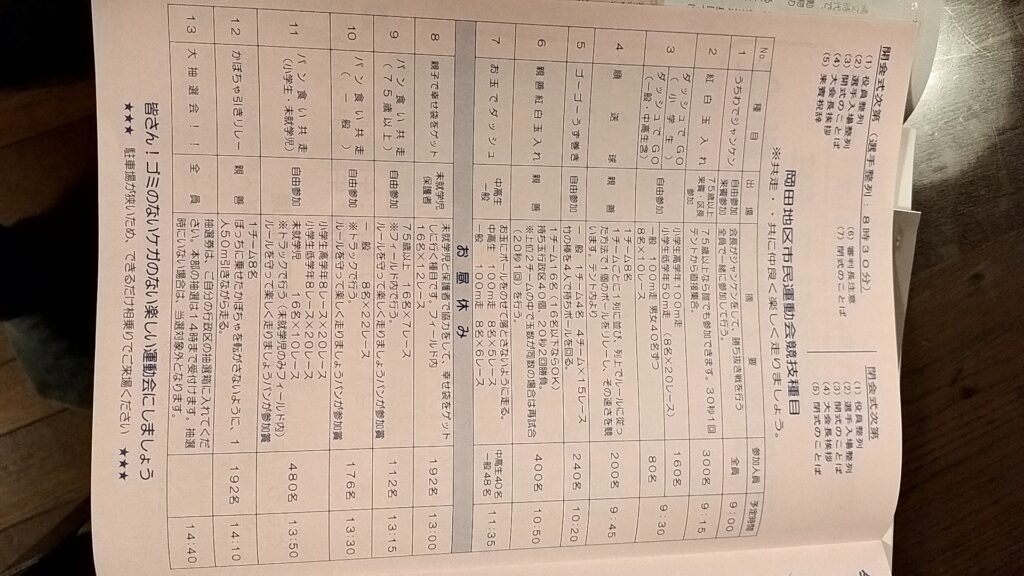 開会式次第（選手整列：８時３０分）
(1) 役員整列
(2) 選手入場整列
(3) 開式のことば
(4) 大会長挨拶
(5) 来賓祝辞
(6) 審判長注意
(7) 閉式のことば
閉会式次第
(1) 役員整列
(2) 選手入場整列
(3) 開式のことば
(4) 大会長挨拶
(5) 閉式のことば
岡田地区市民運動会競技種目
※共走・・共に仲良く楽しく走りましょう。
No. 種目 出場 摘要 参加人員 予定時間
1 うちわでジャンケン 自由参加 来賓参加 会長がジャンケンをして、勝ち抜き戦を行う 全員で一緒に参加して行う。 全員 9:00
2 紅白玉入れ 75歳以上 来賓・区長 参加 75歳以上なら誰でも参加できます。30秒1回 テントから直接集合。 300名 9:15
3 ダッシュでGO （小学生） 小学生高学年100m走 小学生低学年50m走 （8名×20レース） 160名
ダッシュでGO （一般 中高生含） 自由参加 一般 100m走 男女40名ずつ 8名×10レース 80名 9:30
4 順送球 1チーム8名 1チームごとに1列に並び、列上でルールに従っ た方法で1個のボールをリレーし、その速さを競 います。テント内より 200名 9:45
5 ゴーゴーうず巻き 自由参加 一般 1チーム4名 4チーム×15レース 竹の棒を4人で持ちポールを回る。 240名 10:20
6 親善紅白玉入れ 親善 1チーム16名（16名以下ならOK） 持ち玉行政区40個、20秒2回勝負。 ※上位2チームの中で玉数が同数の場合は再試合 （20秒1回）を行う。 400名 10:50
7 お玉でダッシュ 中高生 一般 お玉にボールをのせて落とさないように走る。 中高生 100m走 8名×5レース 一般 100m走 8名×6レース 中高生40名 一般48名 11:35
お昼休み
8 親子で幸せ袋をゲット 未就学児 保護者 未就学児と保護者で協力をして、幸せ袋をゲット して行く種目です。フィールド内 192名 13:00
9 パン食い共走 （75歳以上） 自由参加 75歳以上 16名×7レース ※フィールド内で行う。 ルールを守って楽しく走りましょうパンが参加賞 112名 13:15
10 パン食い共走 （一般） 自由参加 一般 8名×22レース ※トラックで行う。 ルールを守って楽しく走りましょうパンが参加賞 176名 13:30
11 パン食い共走 （小学生・未就学児） 自由参加 小学生高学年8レース×20レース 小学生低学年8レース×20レース 未就学児 16名×10レース ※トラックで行う（未就学児のみフィールド内） ルールを守って楽しく走りましょうパンが参加賞 480名 13:50
12 かぼちゃ引きリレー 親善 1チーム8名 ぼうしに乗せたかぼちゃを転がさないように、1 人50m引きながら走る。 192名 14:10
13 大抽選会！！ 全員 抽選券は、ご自分の行政区の抽選箱に入れてくだ さい。本部の抽選は14時まで受付けます。抽選 時にいない場合は、当選対象外となります。 14:40
皆さん！ゴミのないケガのない楽しい運動会にしましょう
★★★ 駐車場が狭いため、できるだけ相乗りでご来場ください ★★★